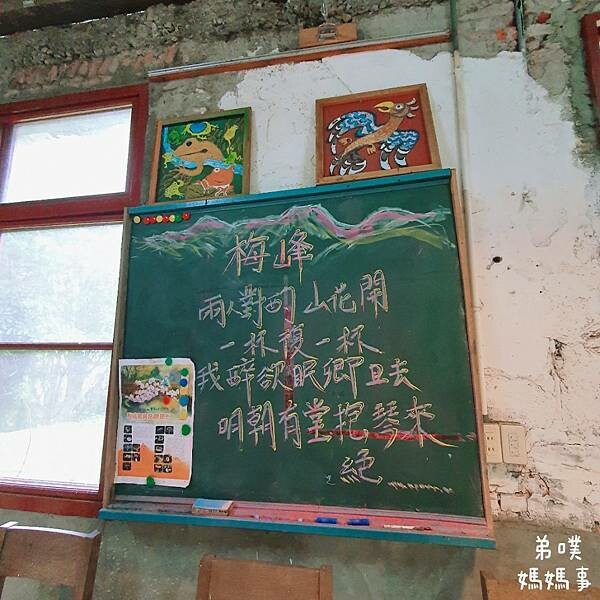 梅峰
兩人對酌 山花開
一杯複一杯
我醉欲眠卿且去
明朝有意抱琴來
絕
弟噗
媽媽事